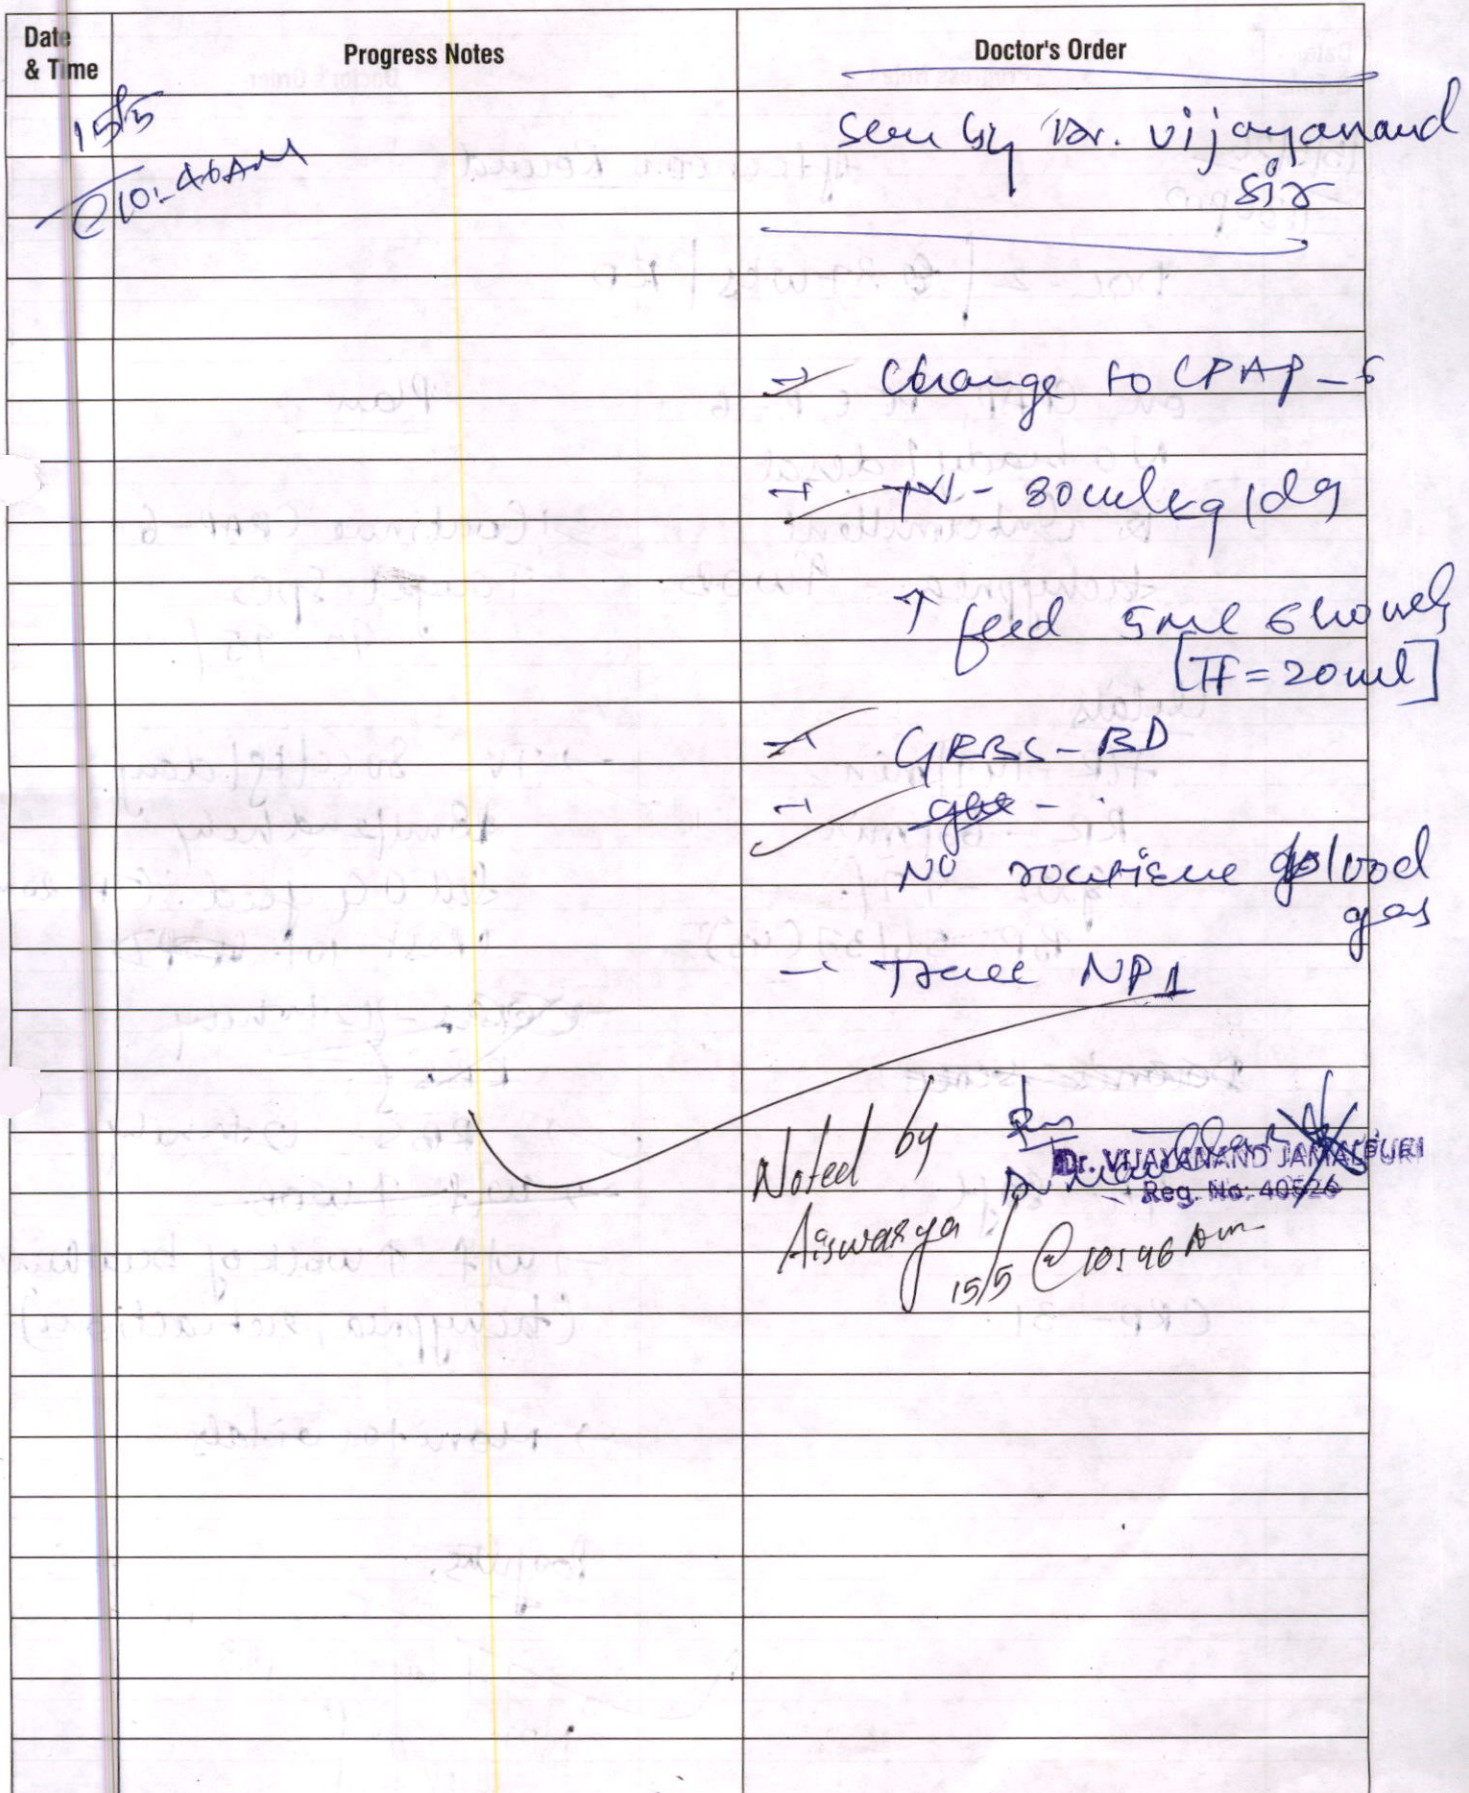 Date & Time
Progress Notes
Doctor's Order
15/5
@ 10:40AM
Seen by Dr. Vijayanand
Sir
→ Change to CPAP - 5
→ - 80ml/kg/d
↑ feed 5ml 6 hourly
[TF = 20ml]
→ GRBS - BD
→ gas -
No routine blood
gas
→ Trace NP1
Noted by
Aiswarya
15/5 @ 10:46 Am
Dr. VIJAYANAND JAMALPURI
Reg. No: 40526